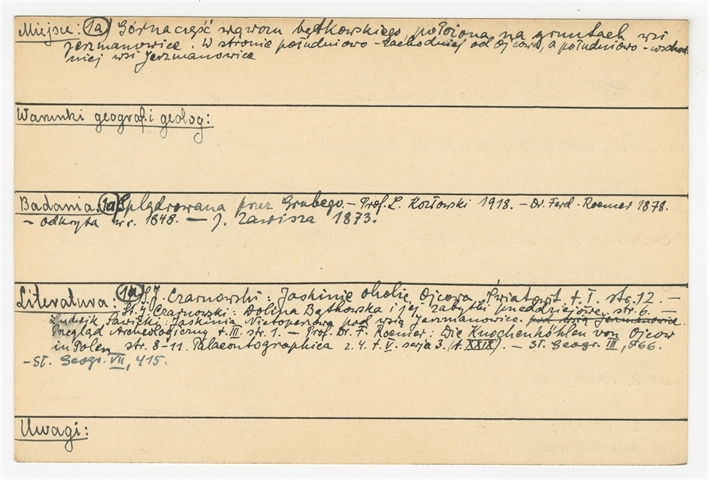 Miejsce: 1a) Górna część wąwozu będkowskiego, położona na gruntach wsi
Jerzmanowice. W stronie południowo-zachodniej od Ojcowa, a południowo-wschod-
niej wsi Jerzmanowice
Warunki geograf. i geolog:
Badania: 1a) Splądrowana przez Grubego. – Prof. L. Kozłowski 1918. – Dr. Ferd. Roemer 1878.
– odkryta w r. 1848. – J. Zawisza 1873.
Literatura: 1a) S. J. Czarnowski: Jaskinie okolic Ojcowa, Światowit t. I. str. 12. –
St. J. Czarnowski: Dolina Będkowska i jej zabytki przeddziejowe, str. 6. –
Ludwik Sawicki: Jaskinia Nietoperzowa pod wsią Jerzmanowice. pod wsią Jerzmanowice.
Przegląd Archeologiczny t. III str. 1. – Prof. Dr. F. Roemer: Die Knochenhöhlen von Ojcow
in Polen str. 8-11. Palaeontographica z. 4. t. V. serja 3. (t. XXIX). – Sł. Geogr. III, 766.
– Sł. Geogr. VII, 415.
Uwagi: